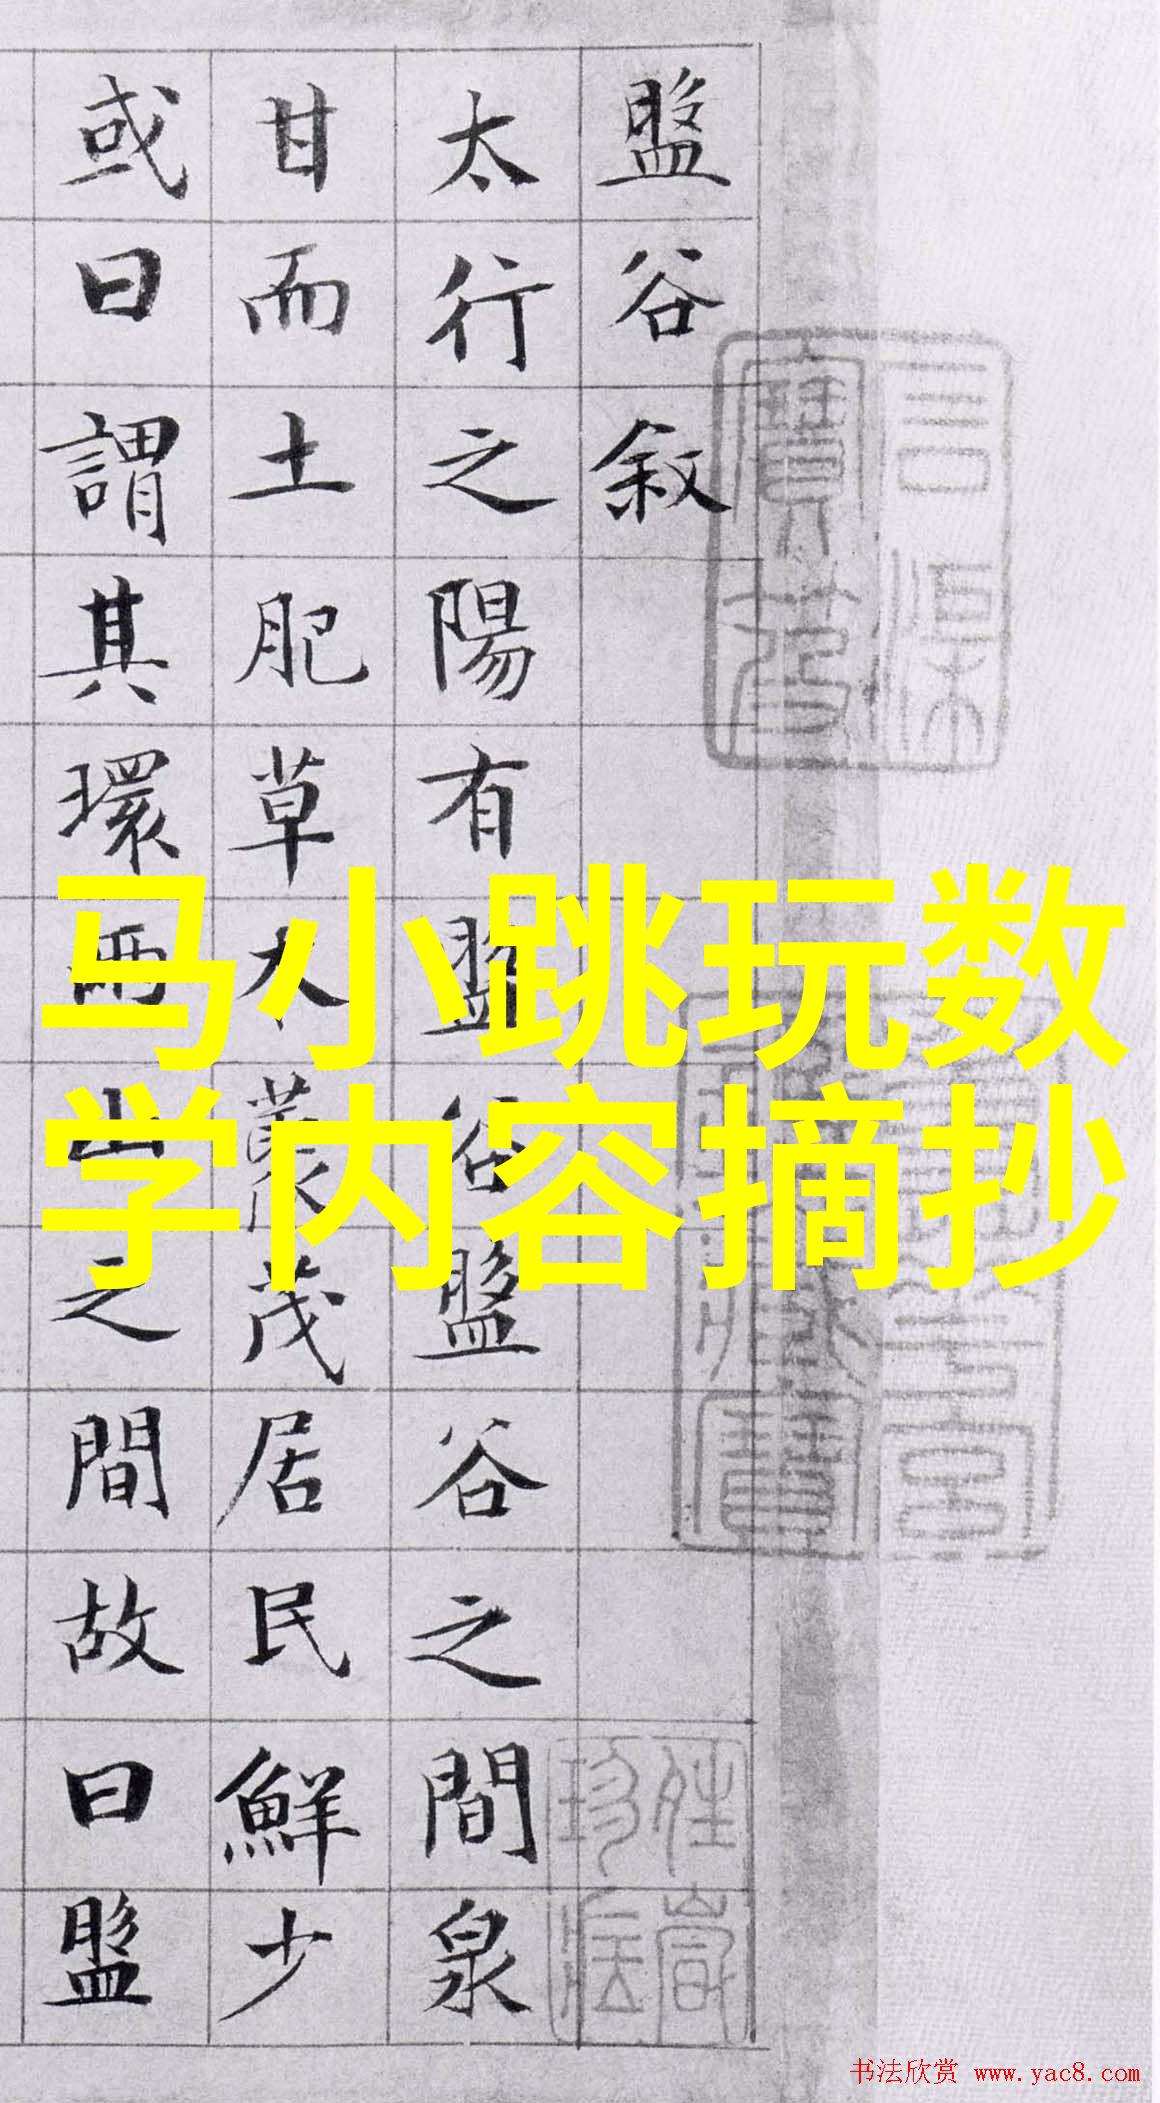 盤谷敘
太行之陽有盤谷盤谷之間泉
甘而土肥草木叢茂居民鮮少
或曰謂其環兩山之間故曰盤
马小跳玩数
学内容摘抄
书法欣赏 www.yac8.com